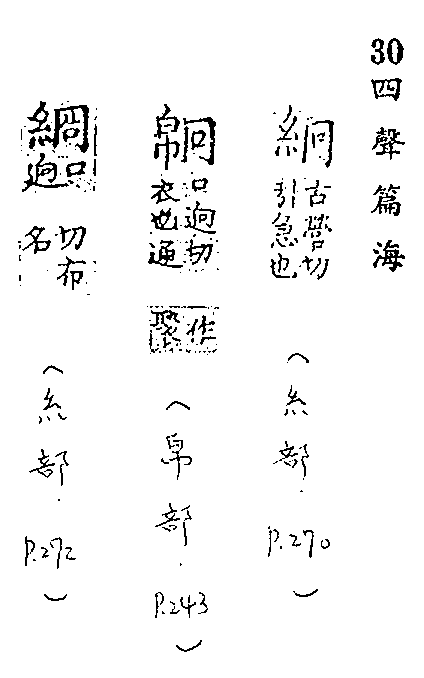 30四聲篇海
絅
古營切
引急也
(糸部.P.270)
口逈切
衣也通
作褧
(帛部.P.243)
䌹
口
逈
切布
名
(糸部.P.272)